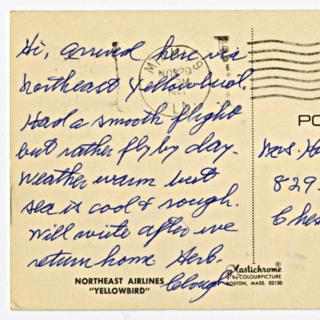 Hi, arrived here via
northeast yellowbird.
Had a smooth flight
but rather fly by day.
Weather warm but
sea is cool & rough.
Will write after we
return home Herb.
Clough
NORTHEAST AIRLINES
"YELLOWBIRD"
MIAMI
NOV 29
PM
PO
Mrs. Ho
829
Ches
Plastichrome®
by COLOURPICTURE
BOSTON, MASS. 02130